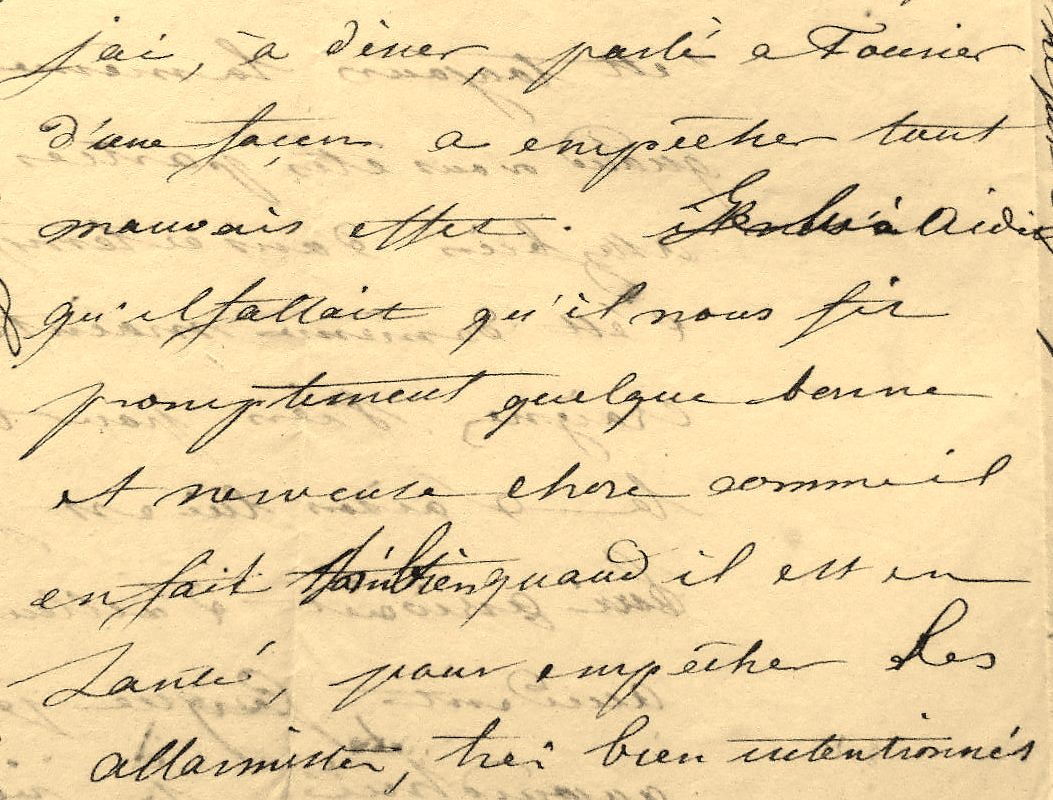 j'ai, à dîner, parlé a Fournier
d'une façon a empêcher tout
mauvais effet.
qu'il fallait qu'il nous fit
promptement quelque bonne
et nerveuse chose comme il
en fait si bien quand il est en
santé, pour empêcher les
allarmistes, très bien intentionnés